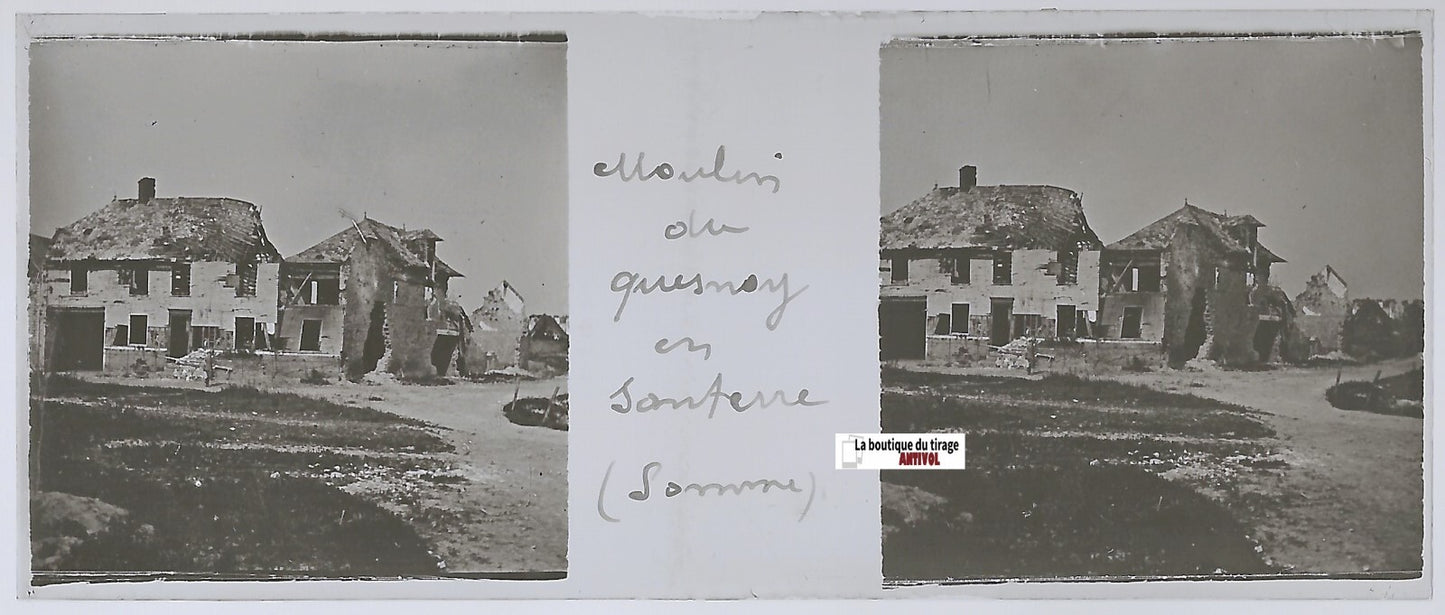 Moulin
du
quesnoy
en
Santerre
(Somme)
La boutique du tirage
ANTIVOL